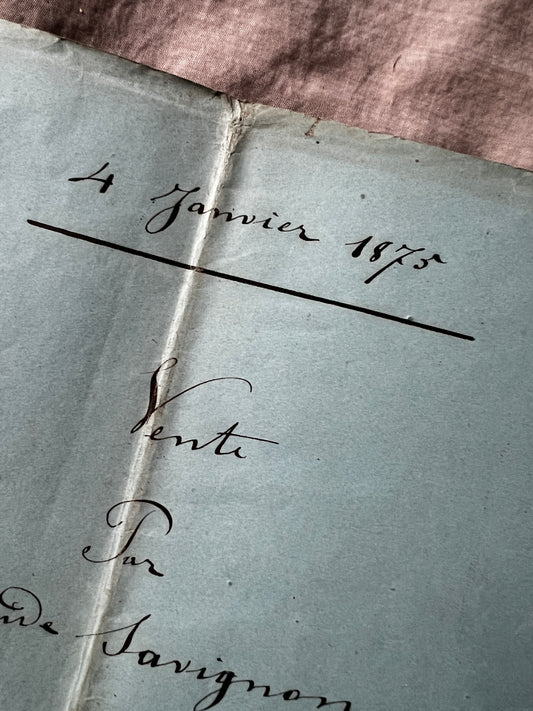 4 Janvier 1875
Vente
Par
Savignon